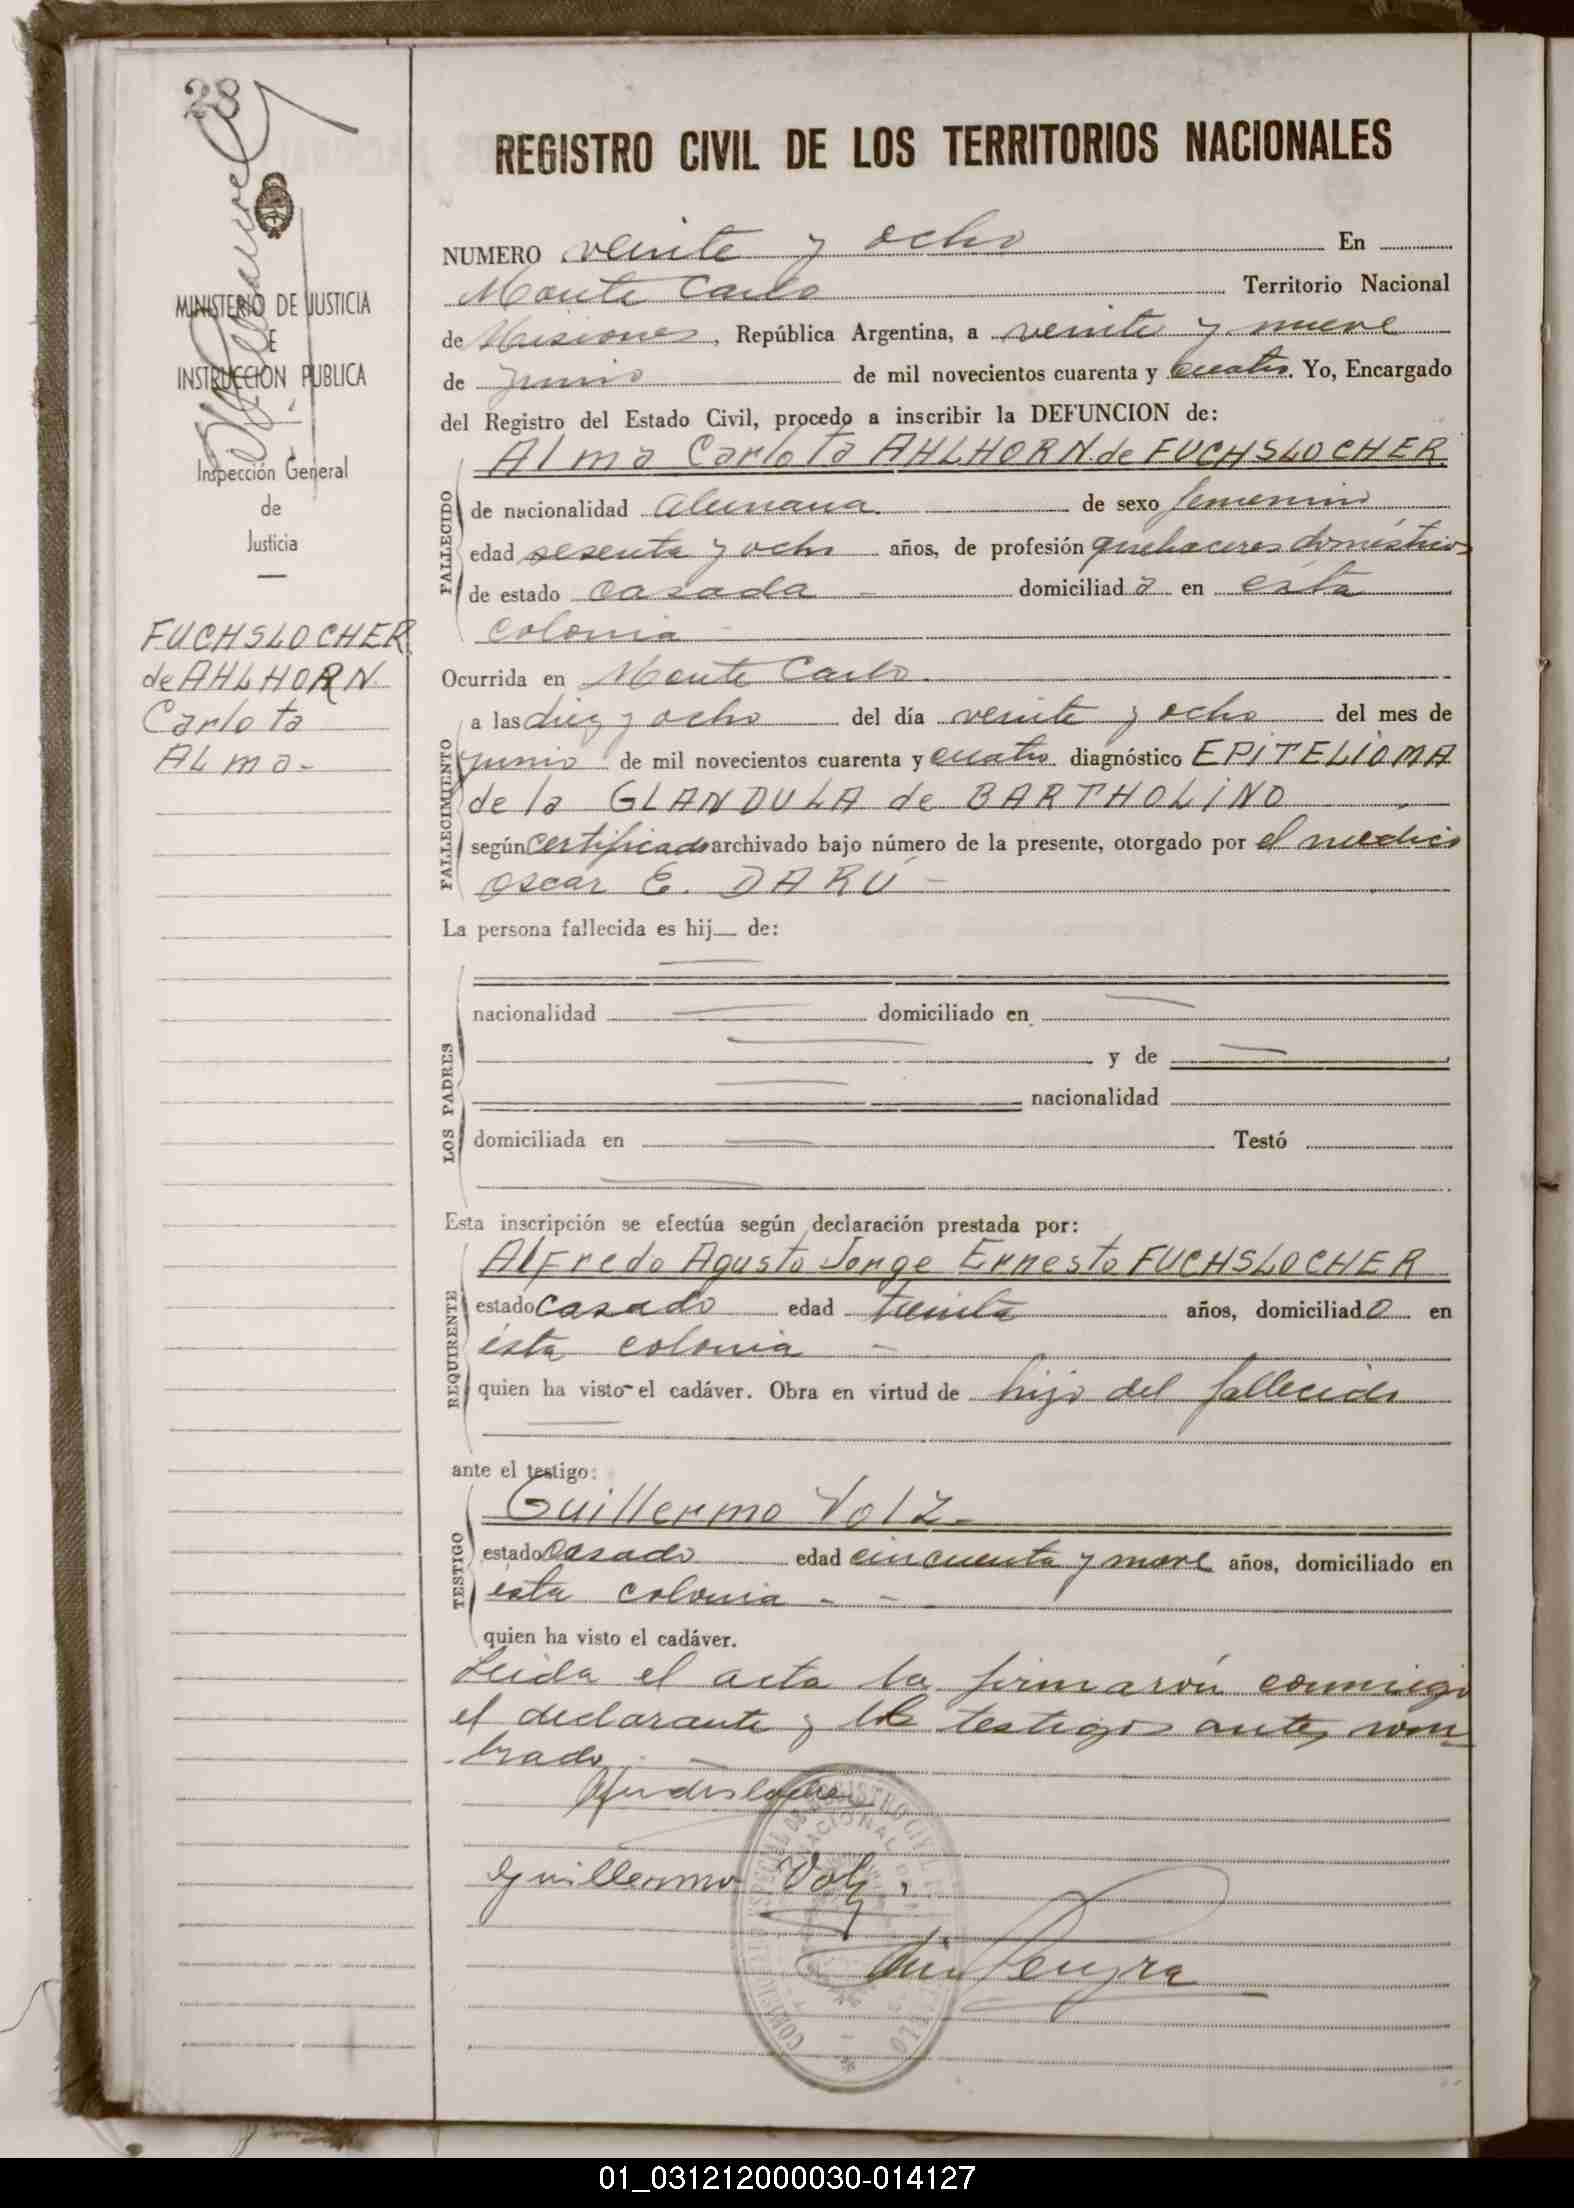 28
MINISTERIO DE JUSTICIA
E
INSTRUCCION PUBLICA
Inspección General
de
Justicia
FUCHSLOCHER
de AHLHORN
Carlota
ALma-
REGISTRO CIVIL DE LOS TERRITORIOS NACIONALES
NUMERO veinte y ocho En
Monte Carlo Territorio Nacional
de Misiones, República Argentina, a veinte y nueve
de junio de mil novecientos cuarenta y cuatro. Yo, Encargado
del Registro del Estado Civil, procedo a inscribir la DEFUNCION de:
FALLECIDO
Alma Carlota AHLHORN de FUCHSLOCHER
de nacionalidad alemana. de sexo femenino
edad sesenta y ocho años, de profesión quehaceres domésticos
de estado casada - domiciliada en ésta
colonia -
Ocurrida en Monte Carlo.
FALLECIMIENTO
a las diez y ocho del día veinte y ocho del mes de
junio de mil novecientos cuarenta y cuatro diagnóstico EPITELIOMA
de la GLANDULA de BARTHOLINO
según certificado archivado bajo número de la presente, otorgado por el medico
Oscar E. DARÚ -
La persona fallecida es hij de:
LOS PADRES
nacionalidad domiciliado en
y de
nacionalidad
domiciliada en Testó
Esta inscripción se efectúa según declaración prestada por:
REQUIRENTE
Alfredo Agusto Jorge Ernesto FUCHSLOCHER
estado casado edad treinta años, domiciliado en
ésta colonia -
quien ha visto el cadáver. Obra en virtud de hijo del fallecido
ante el testigo:
TESTIGO
Guillermo Volz-
estado casado edad cincuenta y nueve años, domiciliado en
ésta colonia - -
quien ha visto el cadáver.
Leida el acta la firmarón conmigo
el declarante y los testigos antes nom-
brado. -
Guillermo Volz.
01_031212000030-014127